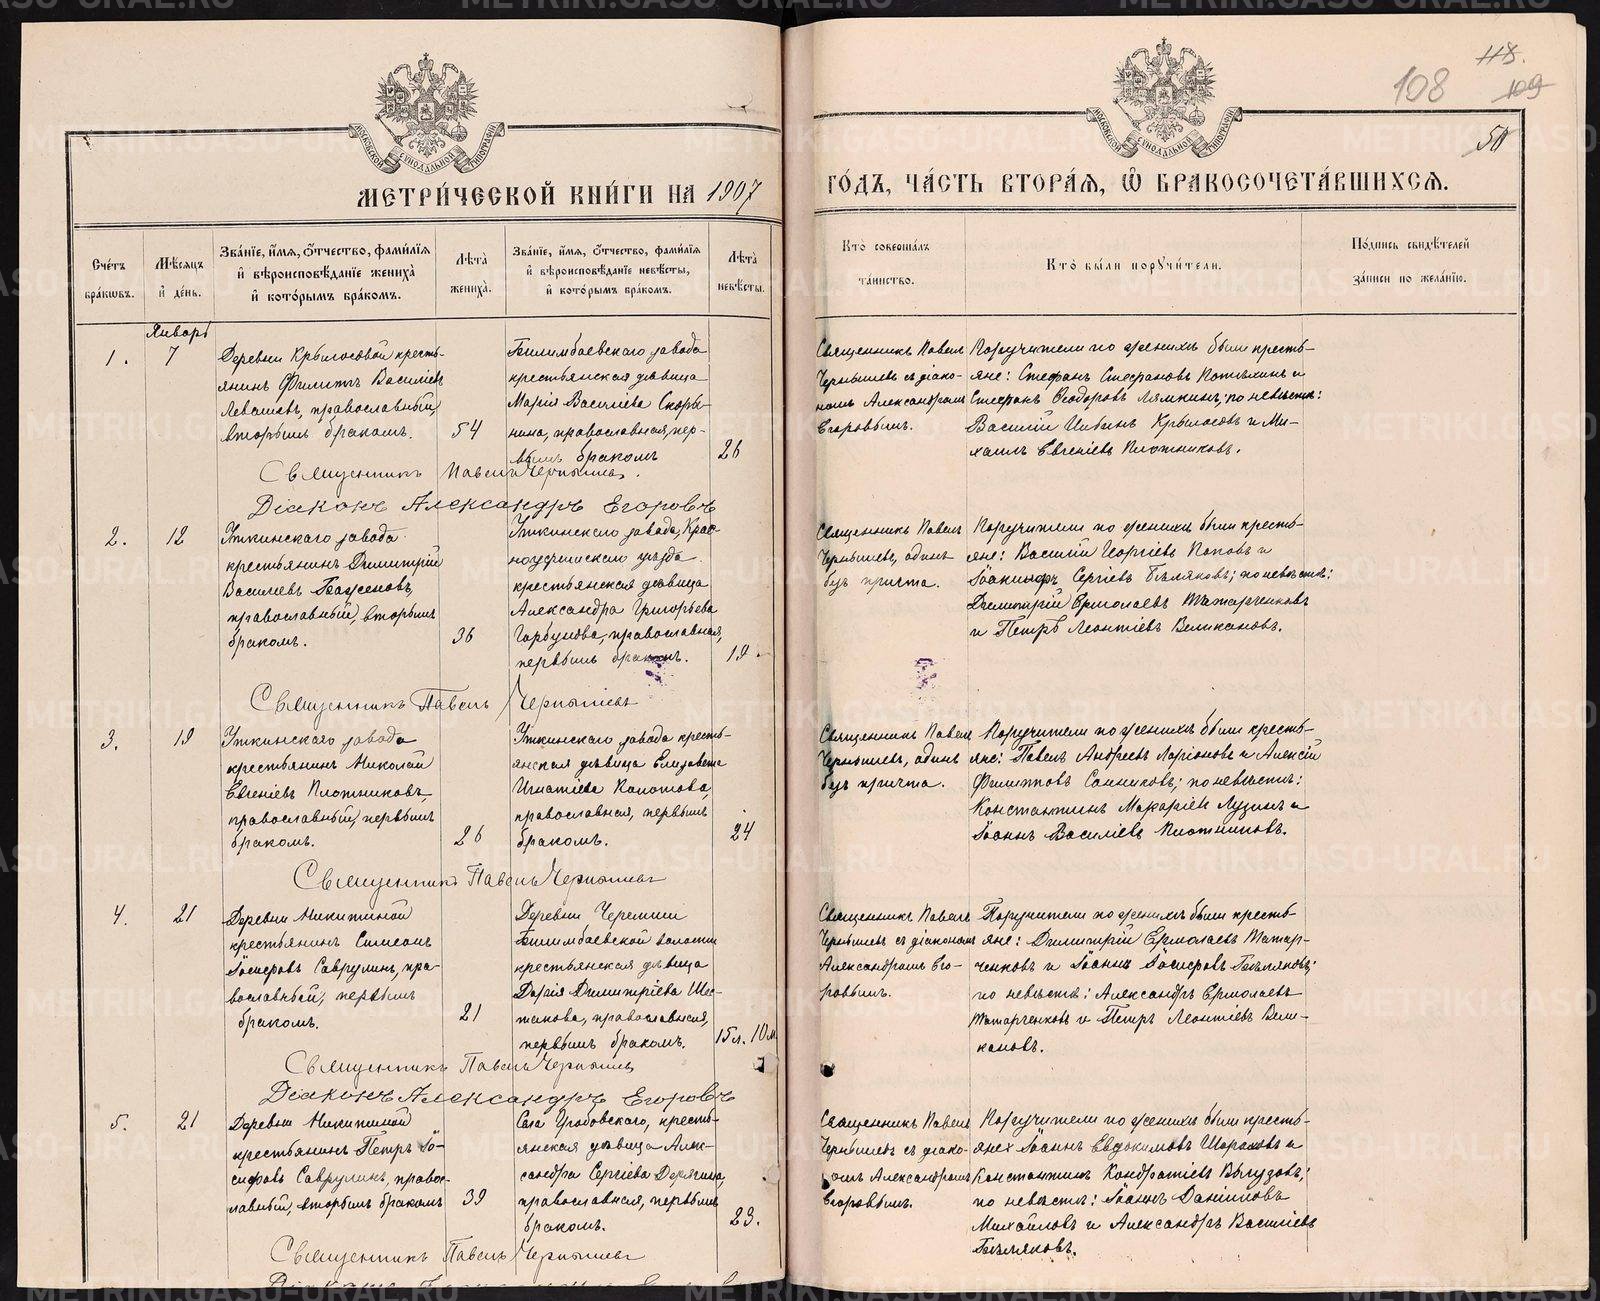 118.
108 109
50
МОСКОВСКОЙ СѴНОДАЛЬНОЙ ТИПОГРАФІИ
МОСКОВСКОЙ СѴНОДАЛЬНОЙ ТИПОГРАФІИ
МЕТРИ́ЧЕСКОЙ КНИ́ГИ НА 1907
ГО́ДЪ, ЧА́СТЬ ВТОРА́Ѧ, Ѽ БРАКОСОЧЕТА́ВШИХСѦ.
Сче́тъ бра́кѡвъ.
Мѣ́сѧцъ и҆ де́нь.
Зва́нїе, и҆́мѧ, ѻ҆́тчество, фами́лїѧ
и҆ вѣроисповѣ́данїе жениха̀
и҆ кото́рымъ бра́комъ.
Лѣта̀ жениха̀.
Зва́нїе, и҆́мѧ, ѻ҆́тчество, фами́лїѧ
и҆ вѣроисповѣ́данїе невѣ́сты,
и҆ кото́рымъ бра́комъ.
Лѣта̀ невѣ́сты.
Кто̀ соверша́лъ
та́инство.
Кто̀ бы́ли порꙋчи́тели.
По́дпись свидѣ́телей
за́писи по жела́нїю.
Январь
1. 7
Деревни Крылосовой кресть-
янинъ Филиппъ Василіевъ
Левашевъ, православный,
вторымъ бракомъ. 54
Билимбаевскаго завода
крестьянская дѣвица
Марія Василіева Скоры-
нина, православная, пер-
вымъ бракомъ 26
Священникъ Павелъ
Чернышевъ съ діако-
номъ Александромъ
Егоровымъ.
Поручители по женихѣ были кресть-
яне: Стефанъ Стефановъ Котѣхинъ и
Стефанъ Ѳеодоровъ Лямкинъ; по невѣстѣ:
Василій Крылосовъ и Ми-
хаилъ Евгеніевъ Плотниковъ.
Священникъ Павелъ Чернышевъ.
Діаконъ Александръ Егоровъ
2. 12
Уткинскаго завода
крестьянинъ Димитрій
Василіевъ Баженовъ,
православный, вторымъ
бракомъ. 36
Уткинскаго завода, Крас-
ноуфимскаго уѣзда
крестьянская дѣвица
Александра Григорьева
Горбунова, православная,
первымъ бракомъ. 19
Священникъ Павелъ
Чернышевъ, одинъ
безъ причта.
Поручители по женихѣ были кресть-
яне: Василій Георгіевъ Поповъ и
Іоакинфъ Сергіевъ Бѣляковъ; по невѣстѣ:
Димитрій Ермолаевъ Татарченковъ
и Петръ Леонтіевъ Великановъ.
Священникъ Павелъ Чернышевъ
3. 19
Уткинскаго завода
крестьянинъ Николай
Евгеніевъ Плотниковъ,
православный, первымъ
бракомъ. 26
Уткинскаго завода кресть-
янская дѣвица Елизавета
Игнатіева Копотова,
православная, первымъ
бракомъ. 24
Священникъ Павелъ
Чернышевъ, одинъ
безъ причта.
Поручители по женихѣ были кресть-
яне: Павелъ Андреевъ Ларіоновъ и Алексій
Филипповъ Санниковъ; по невѣстѣ:
Константинъ Лузинъ и
Іоаннъ Василіевъ Плотниковъ.
Священникъ Павелъ Чернышевъ
4. 21
Деревни Никитиной
крестьянинъ Симеонъ
Іосифовъ Саврулинъ, пра-
вославный, первымъ
бракомъ. 21
Деревни Черемши
Билимбаевской волости
крестьянская дѣвица
Дарія Димитріева Шес-
такова, православная,
первымъ бракомъ. 15 л. 10 м.
Священникъ Павелъ
Чернышевъ съ діакономъ
Александромъ Его-
ровымъ.
Поручители по женихѣ были кресть-
яне: Димитрій Ермолаевъ Татар-
ченковъ и Іоаннъ Іосифовъ Бѣляковъ;
по невѣстѣ: Александръ Ермолаевъ
Татарченковъ и Петръ Леонтіевъ Вели-
кановъ.
Священникъ Павелъ Чернышевъ
Діаконъ Александръ Егоровъ
5. 21
Деревни Никитиной
крестьянинъ Петръ Іо-
сифовъ Саврулинъ, правос-
лавный, вторымъ бракомъ 39
Села Гробовскаго, кресть-
янская дѣвица Алек-
сандра Сергіева Дерягина,
православная, первымъ
бракомъ. 23.
Священникъ Павелъ
Чернышевъ съ діако-
номъ Александромъ
Егоровымъ.
Поручители по женихѣ были кресть-
яне: Іоаннъ Евдокимовъ и
Константинъ Кондратіевъ
по невѣстѣ: Іоаннъ Даніиловъ
Михайловъ и Александръ Василіевъ
Бѣляковъ.
Священникъ Павелъ Чернышевъ
METRIKI.GASO-URAL.RU